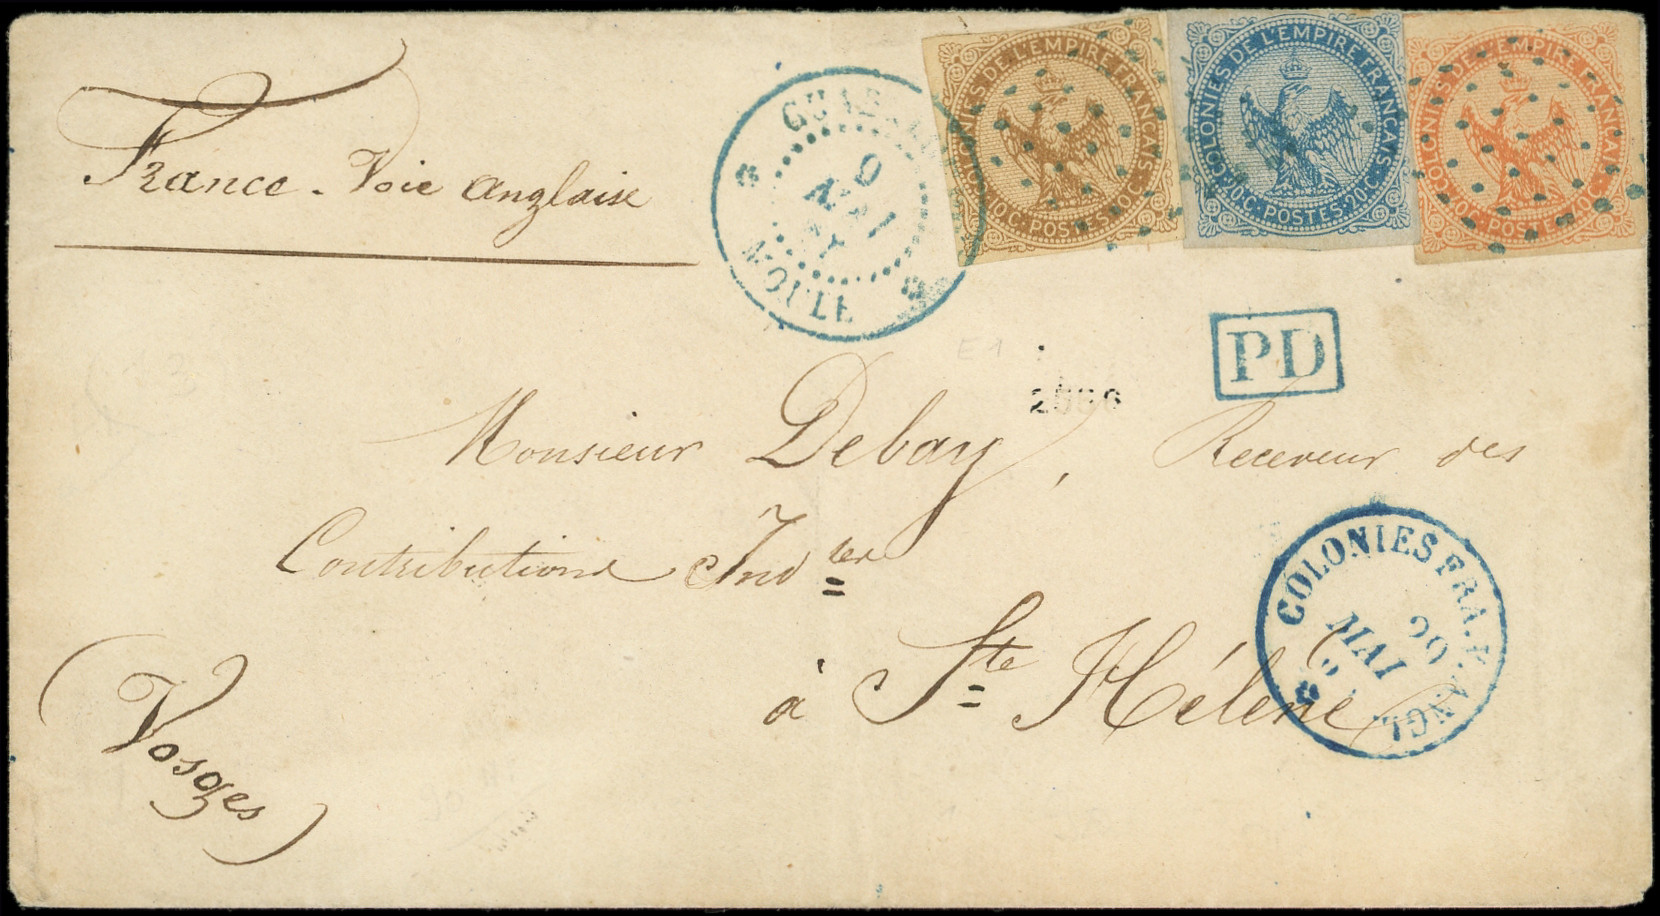 France - Voie anglaise
MOULE
AVRIL
COLONIES DE L'EMPIRE FRANÇAIS
10 C. POSTES 10 C.
COLONIES DE L'EMPIRE FRANÇAIS
20 C. POSTES 20 C.
COLONIES DE L'EMPIRE FRANÇAIS
POSTES
PD
E1
Monsieur Debay, Receveur des
Contributions Ind^tes
à S^te Hélène
(Vosges)
COLONIES FRA. V. ANGL.
20
MAI